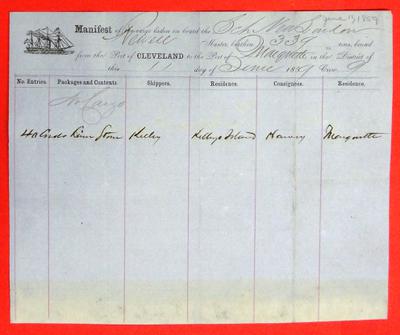 June 13 1859
Manifest of Cargo taken on board the Sch
Master, burthen 335 tons, bound
from the Port of CLEVELAND to the Port of Marquette in the District of
this day of June 1859 Crew 9
No. Entries. Packages and Contents. Shippers. Residence. Consignees. Residence.
No Cargo
40 Cords Lime Stone Kelley Kelleys Island Harvey Marquette